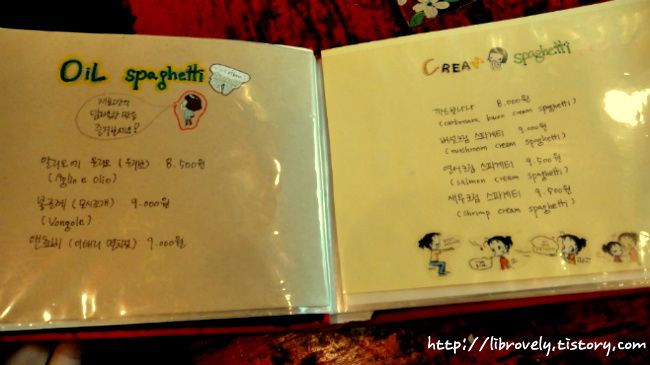 OiL spaghetti
알리오 에 올리오 8.500원
(Aglio e Olio)
봉골레 (모시조개) 9.000원
(Vongole)
엔쵸비 (이태리 멸치젓) 9.000원
CREAM spaghetti
까르보나라 8.000원
(carbonara, bacon cream spaghetti)
버섯크림 스파게티 9.000원
(mushroom cream spaghetti)
연어크림 스파게티 9.500원
(salmon cream spaghetti)
새우크림 스파게티 9.500원
(shrimp cream spaghetti)
http://librovely.tistory.com